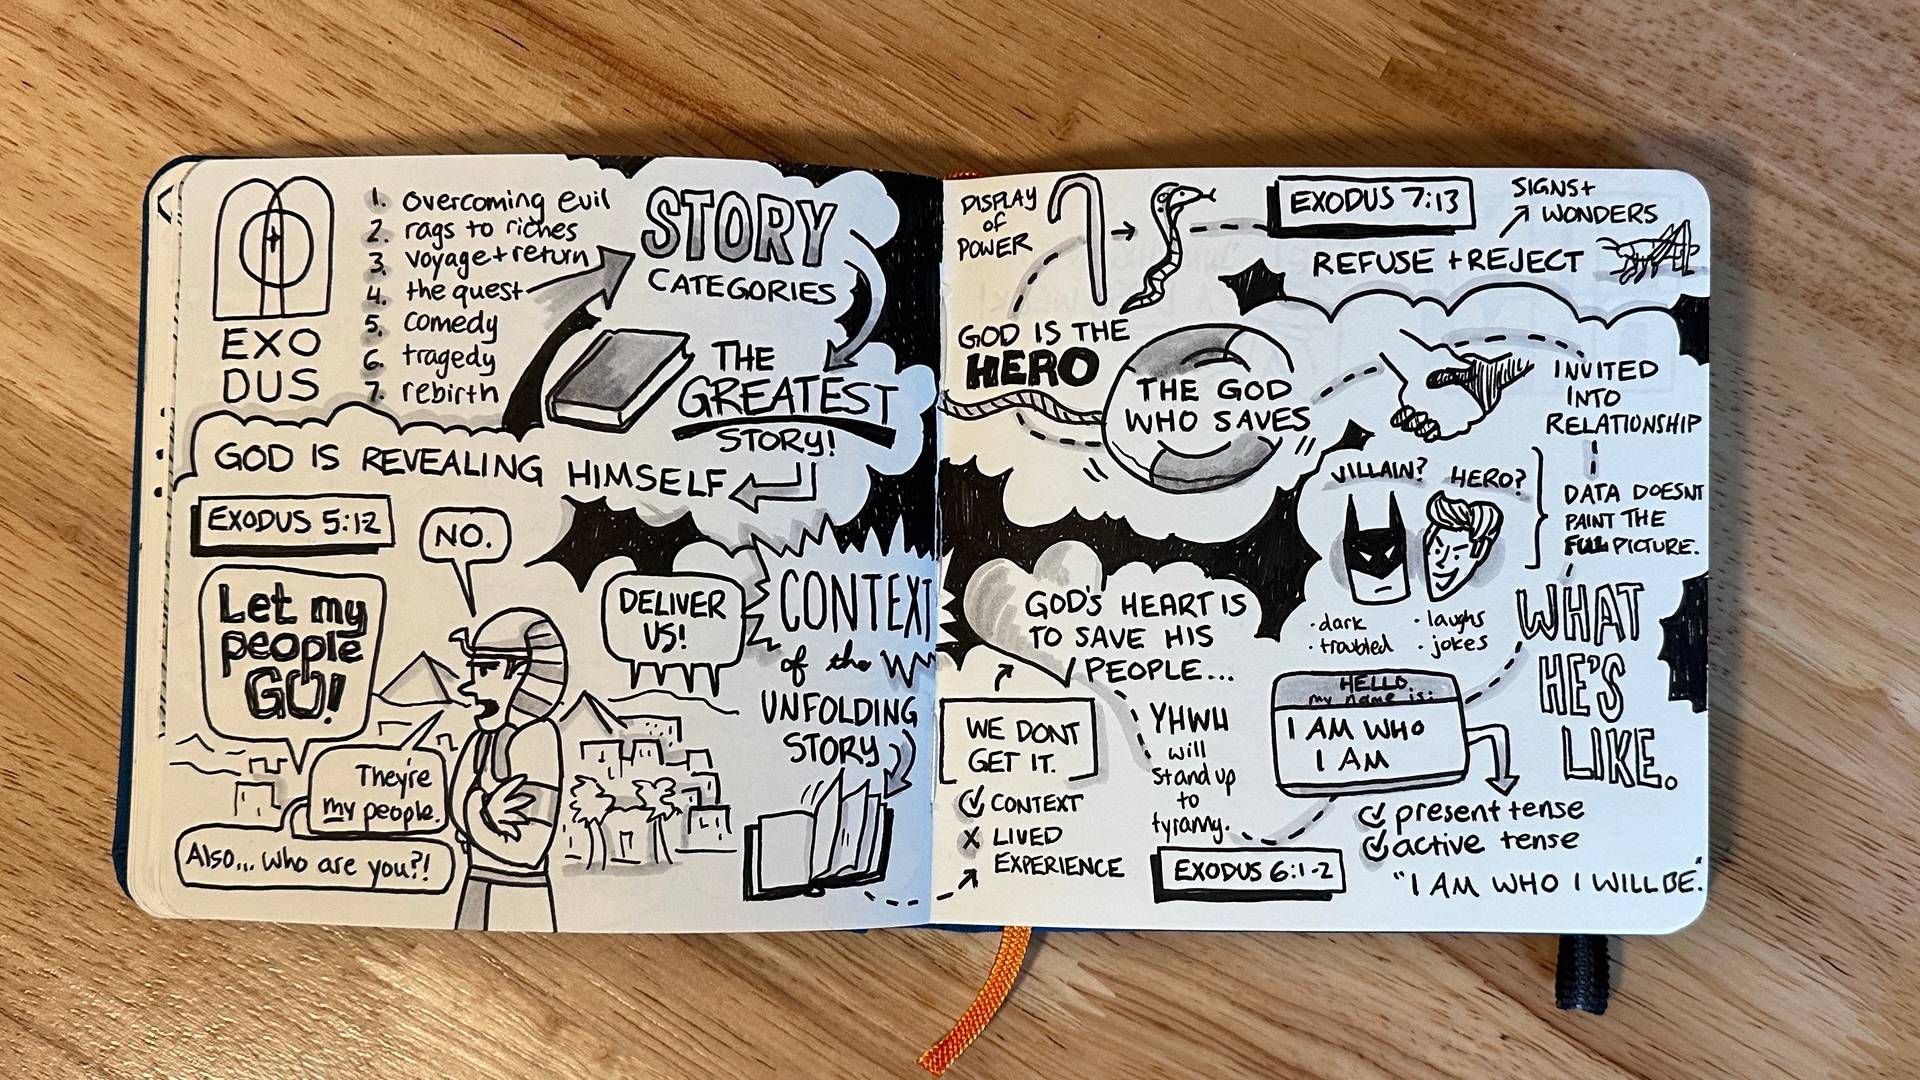 EXO
DUS
1. overcoming evil
2. rags to riches
3. voyage + return
4. the quest
5. comedy
6. tragedy
7. rebirth
STORY
CATEGORIES
THE
GREATEST
STORY!
GOD IS REVEALING HIMSELF
EXODUS 5:12
NO.
Let my
people
GO!
They're
my people.
Also... who are you?!
DELIVER
US!
CONTEXT
of the
UNFOLDING
STORY
DISPLAY
of
POWER
EXODUS 7:13
SIGNS +
WONDERS
REFUSE + REJECT
GOD IS THE
HERO
THE GOD
WHO SAVES
INVITED
INTO
RELATIONSHIP
VILLAIN? HERO?
DATA DOESNT
PAINT THE
FULL PICTURE.
· dark
· troubled
· laughs
· jokes
WHAT
HE'S
LIKE.
GOD'S HEART IS
TO SAVE HIS
PEOPLE...
WE DONT
GET IT.
✓ CONTEXT
X LIVED
EXPERIENCE
YHWH
will
stand up
to
tyranny.
EXODUS 6:1-2
HELLO
my name is:
I AM WHO
I AM
✓ present tense
✓ active tense
"I AM WHO I WILL BE."